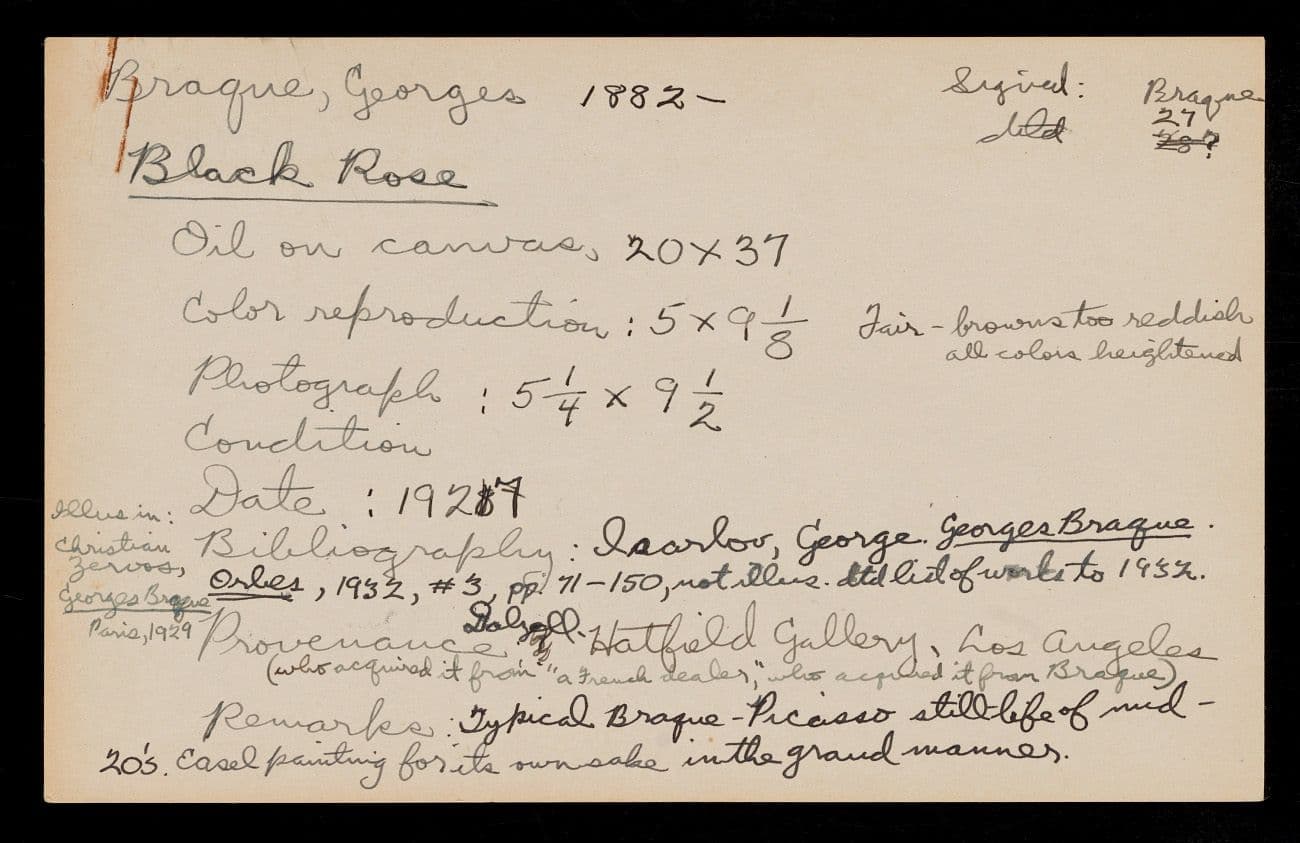 Braque, Georges 1882-
Signed: Braque
dtd 27
28?
Black Rose
Oil on canvas, 20 x 37
Color reproduction : 5 x 9 1/8
Fair - browns too reddish
all colors heightened
Photograph : 5 1/4 x 9 1/2
Condition
Date : 1927
Illus in:
Christian
Zervos,
Georges Braque
Paris, 1929
Bibliography : Isarlov, George. Georges Braque.
Orbes, 1932, #3, pp. 71-150, not illus. dtd list of works to 1932.
Provenance Dalzell Hatfield Gallery, Los Angeles
(who acquired it from "a French dealer," who acquired it from Braque)
Remarks : Typical Braque-Picasso still-life of mid-
20's. Easel painting for its own sake in the grand manner.